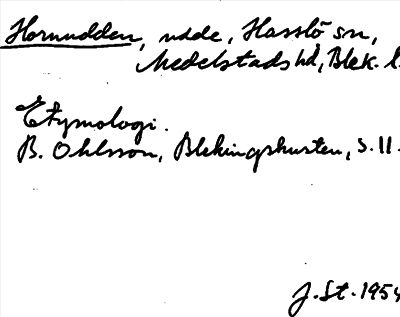 Hornudden, udde, Hasslö sn,
Medelstads hd, Blek. l.
Etymologi.
B. Ohlsson, Blekingskusten, s. 11.
J. St. 1954